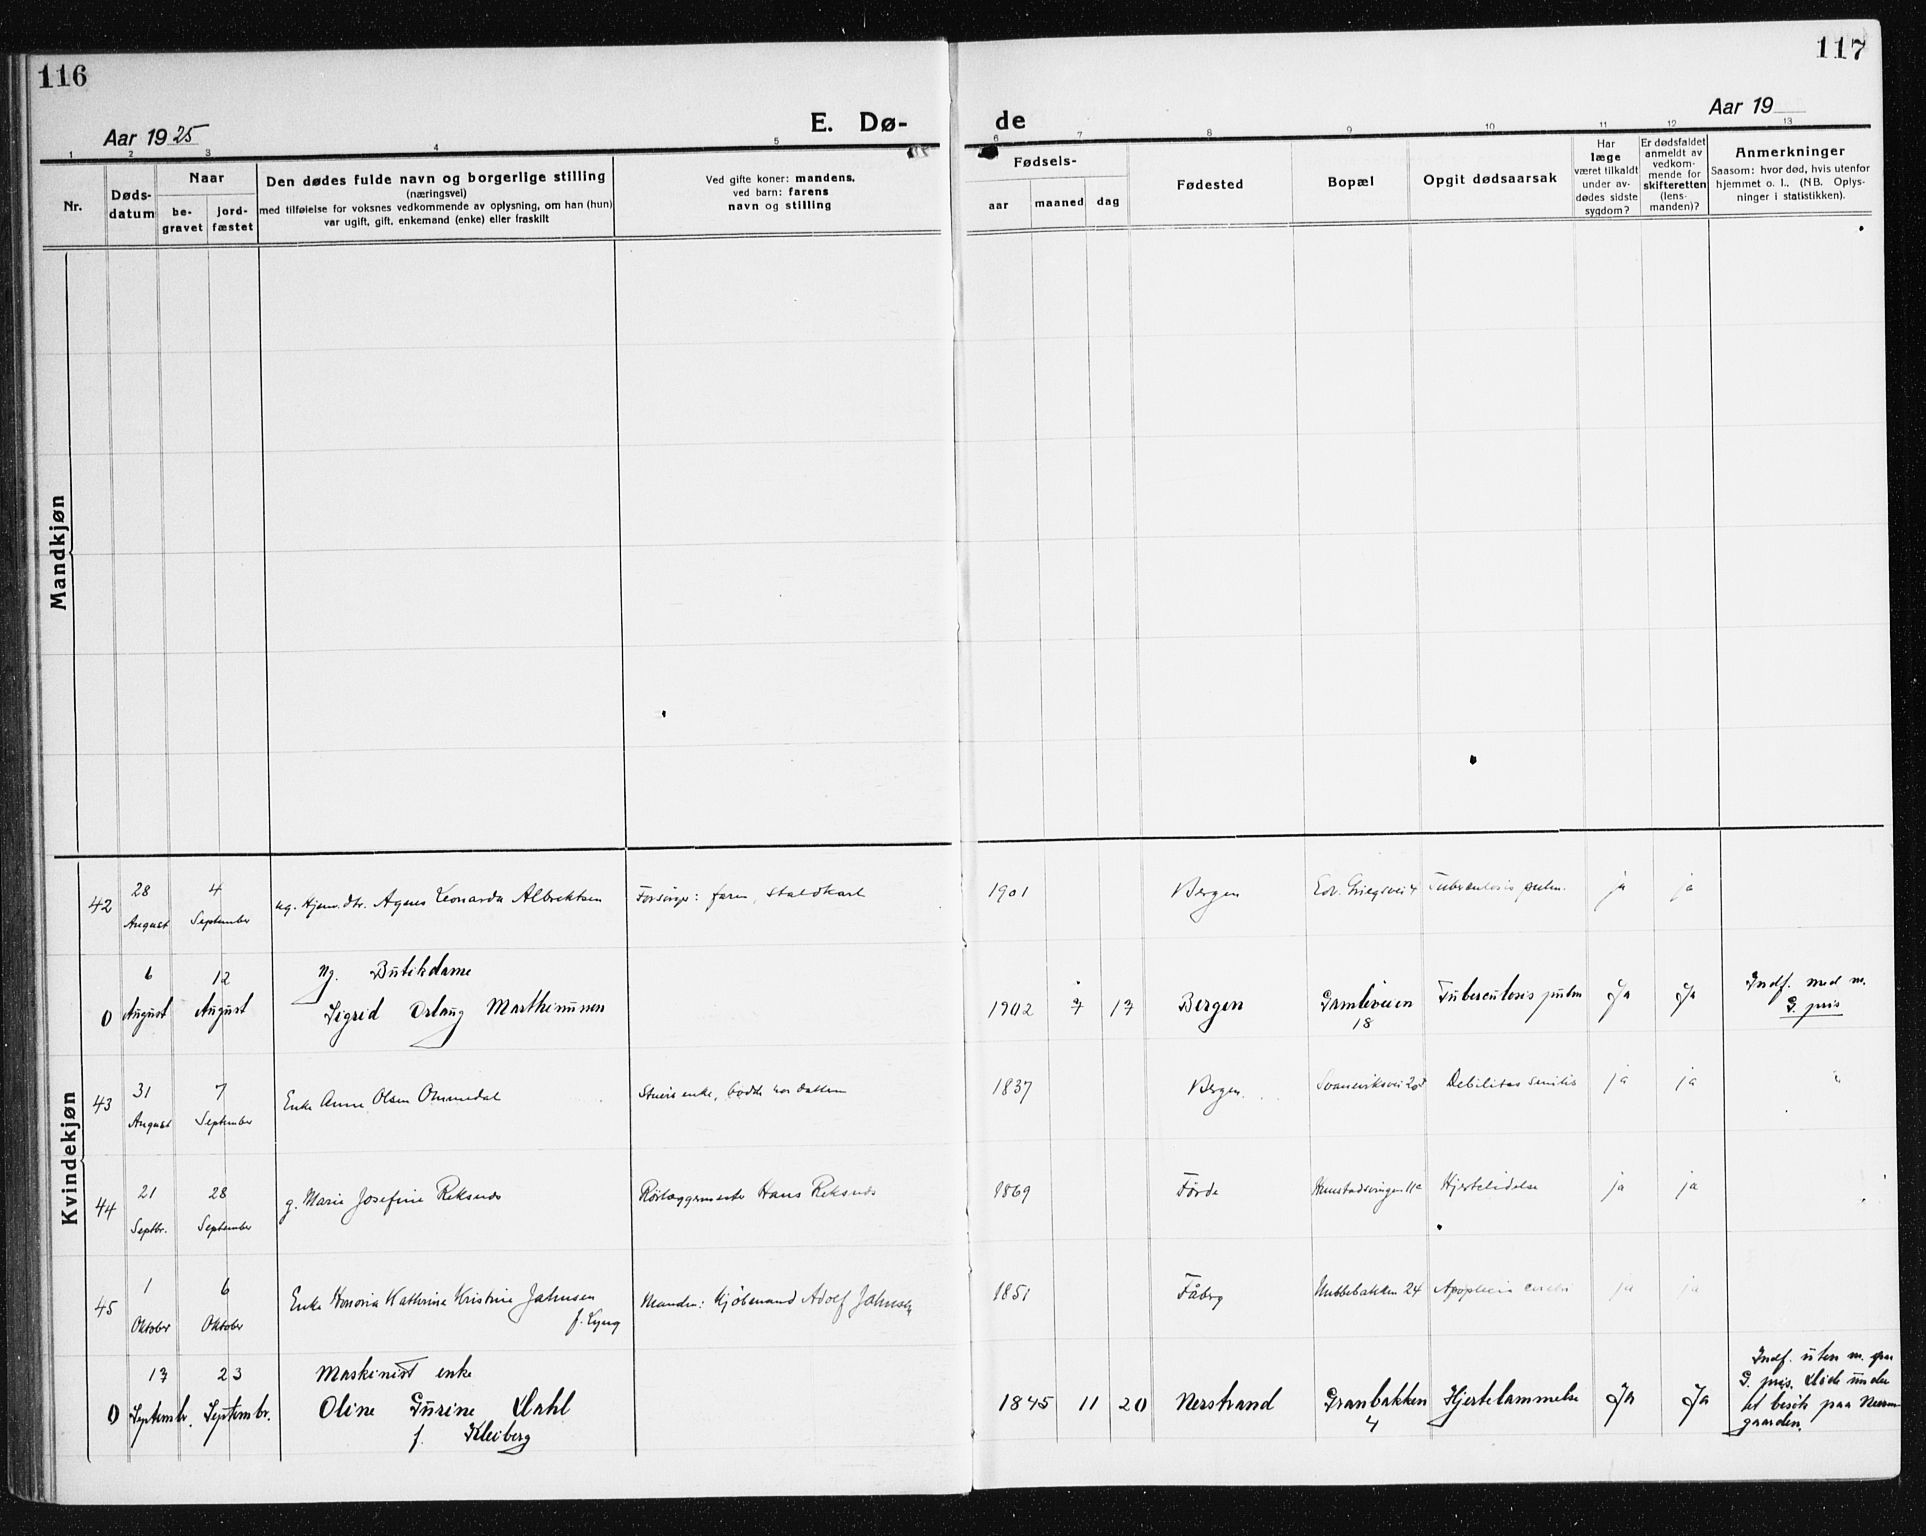 116
117
Aar 1925
E. Dø-
de
Aar 19
1 2 3 4 5 6 7 8 9 10 11 12 13
Nr.
Døds-
datum
Naar
be-
gravet
jord-
fæstet
Den dødes fulde navn og borgerlige stilling
(næringsvei)
med tilføielse for voksnes vedkommende av oplysning, om han (hun)
var ugift, gift, enkemand (enke) eller fraskilt
Ved gifte koner: mandens,
ved barn: farens
navn og stilling
Fødsels-
aar
maaned
dag
Fødested
Bopæl
Opgit dødsaarsak
Har
læge
været tilkaldt
under av-
dødes sidste
sygdom?
Er dødsfaldet
anmeldt av
vedkom-
mende for
skifteretten
(lens-
manden)?
Anmerkninger
Saasom: hvor død, hvis utenfor
hjemmet o. l.. (NB. Oplys-
ninger i statistikken).
Mandkjøn
Kvindekjøn
42
28
August
4
September
ug. Hjem. dtr. Agnes Leonarda Albrektsen
Forsørges: faren, staldkarl
1901
Bergen
Edv. Griegsvei 4
Tuberculosis pulm.
ja
ja
0
6
August
12
August
Ug. Butikdame
Sigrid Oslaug Marthinussen
1902 7 17
Bergen
Gamleveien
18
Tuberculosis pulm
Ja
Ja
Indf. med m.
G. pris
43
31
August
7
September
Enke Anne Olsen Ommedal
enke, bodde hos datteren
1837
Bergen
Svaneviksvei
Debilitas senilis
ja
ja
44
21
Septbr.
28
September
g. Marie Josefine Reksnes
Rørlæggermester Hans Reksnes
1869
Førde
11a
Hjertelidelse
ja
ja
45
1
Oktober
6
Oktober
Enke Honoria Kathrine Kristine Jahnsen
f. Lyng
Manden: Kjøbmand Adolf Jahnsen
1851
Fåberg
Nubbebakken 24
Apoplexia cerebri
ja
ja
0
17
Septembr.
23
Septembr.
Maskinist enke
Oline Gurine Dahl
f. Kleiberg
1845 11 20
Nerstrand
Granbakken
4
Hjertelammelse
Ja
Ja
Indf. uten m. paa
G. pris. Døde under
et besøk paa
gaarden.